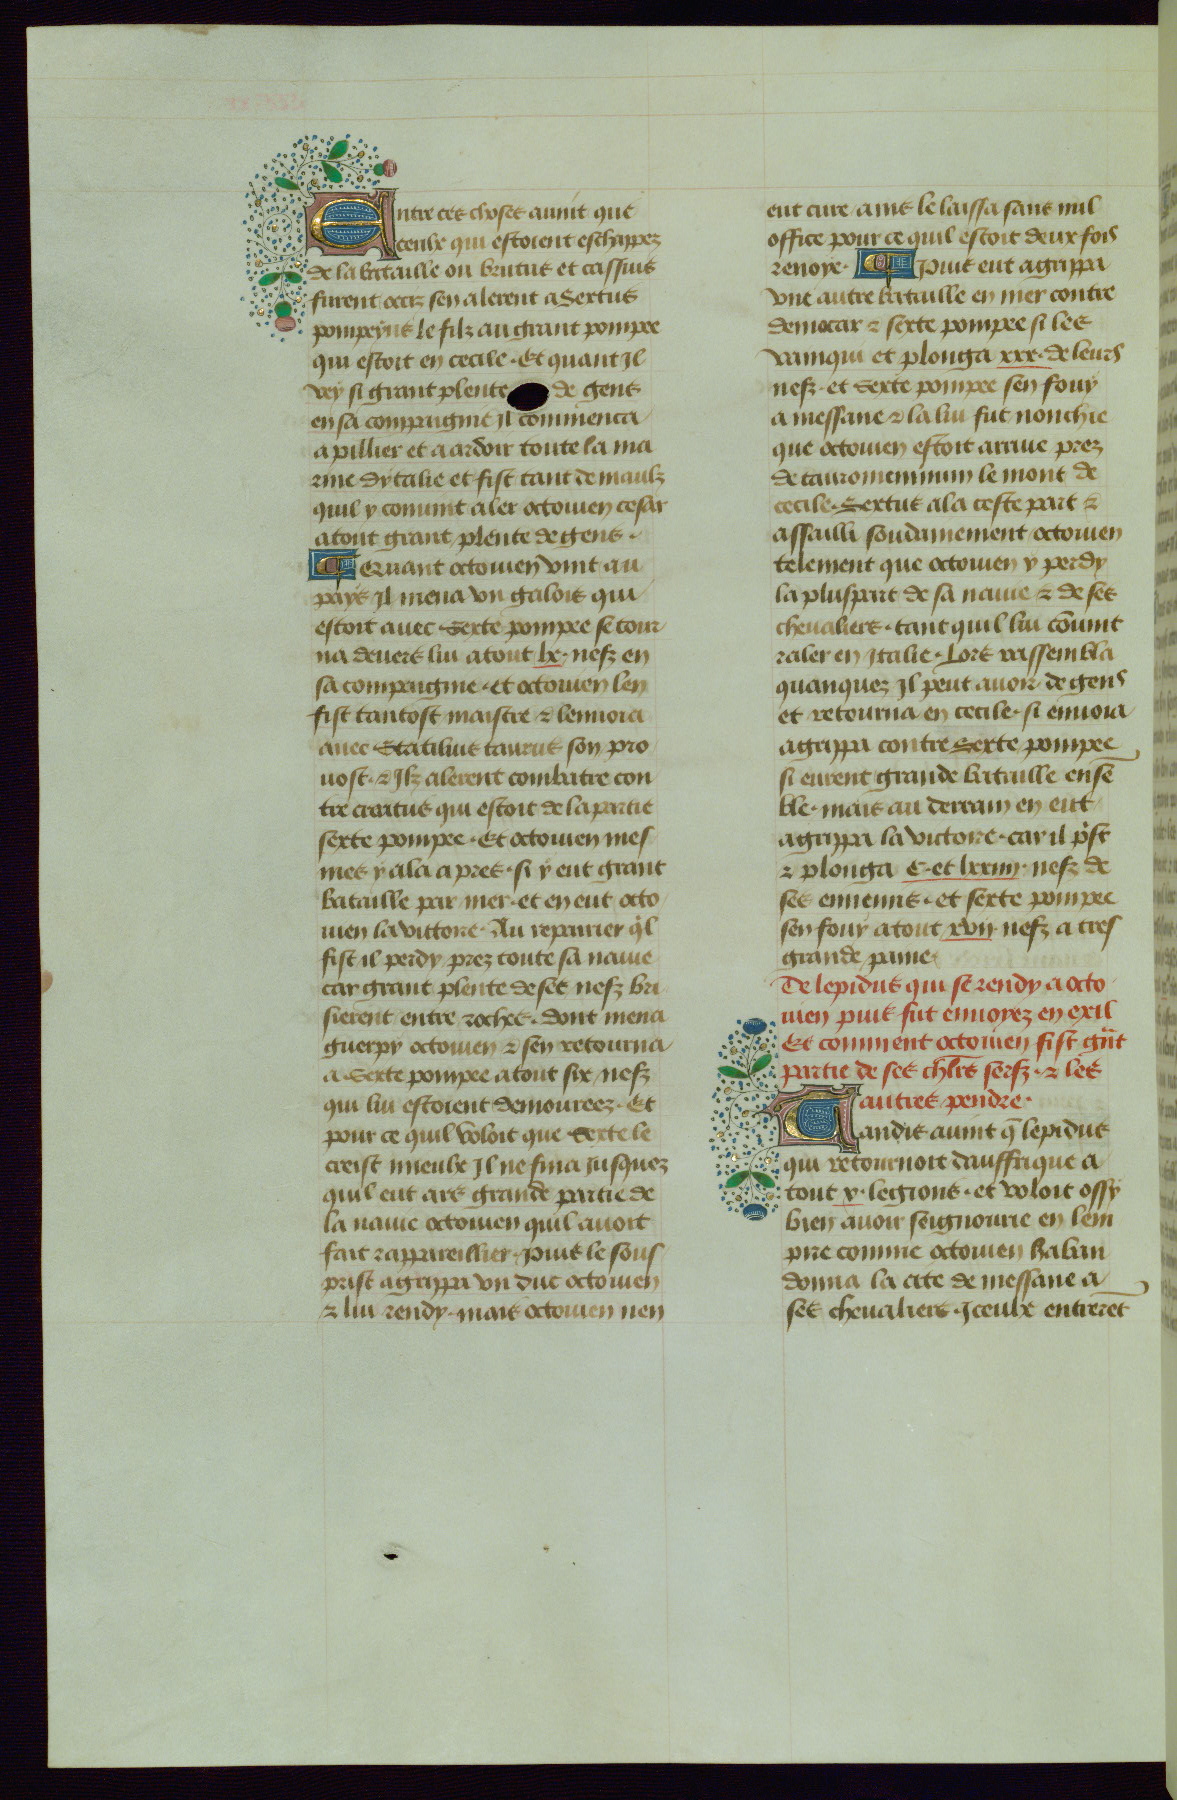 Entre ces choses auint que
ceulx qui estoient eschappez
de la bataille ou brutus et cassius
furent occiz sen alerent a Sextus
pompeyus le filz au grant pompee
qui estoit en cecile. Et quant Il
vey si grant plente de gens
en sa compaignie Il commenca
a pillier et a ardoir toute la ma
rine dytalie et fist tant de maulz
quil y conuint aler octouien cesar
atout grant plente de gens.
¶ Et quant octouien vint au
pays Il mena vn galois qui
estoit auec Sexte pompee se tour
na deuers lui atout lx. nefz en
sa compaignie. et octouien len
fist tantost maistre & lenuoia
auec Statilius taurus son pro
uost. & Ilz alerent combatre con
tre creatus qui estoit de la partie
sexte pompee. Et octouien mes
mes y ala apres. si y eut grant
bataille par mer. et en eut octo
uien la victoire. Au repairier ql
fist il perdy prez toute sa nauie
car grant plente de ses nefz bri
sierent entre roches. dont mena
guerpy octouien & sen retourna
a Sexte pompee atout six nefz
qui lui estoient demoureez. Et
pour ce quil voloit que Sexte le
creist mieulx Il ne fina iusquez
quil eut ars grande partie de
la nauie octouien quil auoit
fait rappareillier. Puis le sous
prist agrippa vn duc octouien
& lui rendy. mais octouien nen
eut cure ains le laissa sans nul
office pour ce quil estoit deux fois
renoye. ¶ Puis eut agrippa
vne autre bataille en mer contre
democar & sexte pompee si les
vainqui et plonga xxx. de leurs
nefz. et Sexte pompee sen fouy
a messane & la lui fut nonchie
que octouien estoit arriue prez
de tauromenium le mont de
cecile. Sextus ala ceste part &
assailli soudainement octouien
telement que octouien y perdy
la pluspart de sa nauie & de ses
cheualiers. tant quil lui cōuint
raler en Italie. Lors rassembla
quanquez Il peut auoir de gens
et retourna en cecile. si enuoia
agrippa contre Sexte pompee
si eurent grande bataille ense
ble. mais au derrain en eut
agrippa la victoire. car il pꝰst
& plonga C. et lxxiiij. nefz de
ses ennemis. et sexte pompee
sen fouy atout xvij. nefz a tres
grande paine.
De lepidus qui se rendy a octo
uien puis fut enuoyez en exil
Et comment octouien fist gr̄nt
partie de ses chlr̄s serfz. & les
autres pendre.
Tandis auint q̄ lepidus
qui retournoit dauffrique a
tout x. legions. et voloit ossy
bien auoir seignourie en lem
pire comme octouien Haban
donna la cite de messane a
ses cheualiers. Iceulx entrerēt